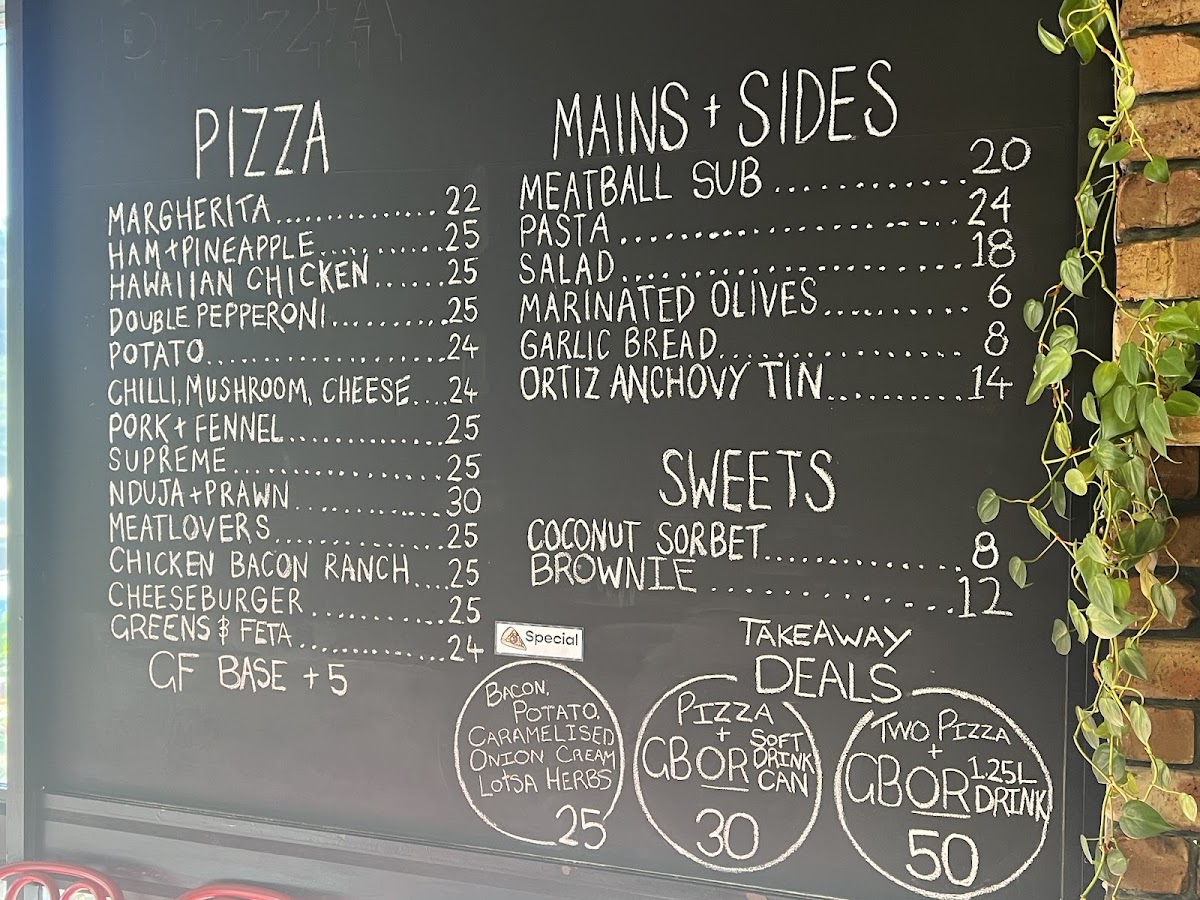 PIZZA
MARGHERITA.............. 22
HAM+PINEAPPLE........... 25
HAWAIIAN CHICKEN...... 25
DOUBLE PEPPERONI.......... 25
POTATO..................... 24
CHILLI, MUSHROOM, CHEESE.... 24
PORK + FENNEL............. 25
SUPREME .................. 25
NDUJA+PRAWN............. 30
MEATLOVERS............... 25
CHICKEN BACON RANCH.... 25
CHEESEBURGER............ 25
GREENS & FETA............. 24
GF BASE +5
MAINS + SIDES
MEATBALL SUB.............. 20
PASTA........................ 24
SALAD........................ 18
MARINATED OLIVES........... 6
GARLIC BREAD................ 8
ORTIZ ANCHOVY TIN.......... 14
SWEETS
COCONUT SORBET............ 8
BROWNIE.................... 12
Special
BACON,
POTATO,
CARAMELISED
ONION CREAM
LOTSA HERBS
25
TAKEAWAY
DEALS
PIZZA
+
GB OR SOFT DRINK CAN
30
TWO PIZZA
+
GB OR 1.25L DRINK
50